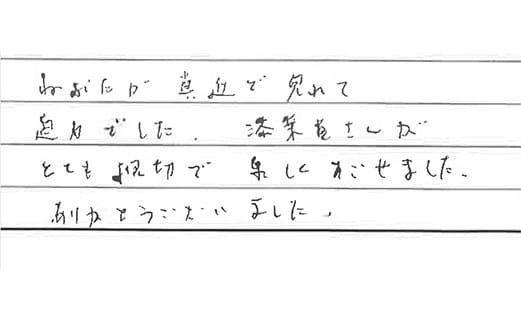 ねぷたが 真近で 見れて
迫力でした. 添乗員さんが
とても親切で 楽しくすごせました.
ありがとうございました.